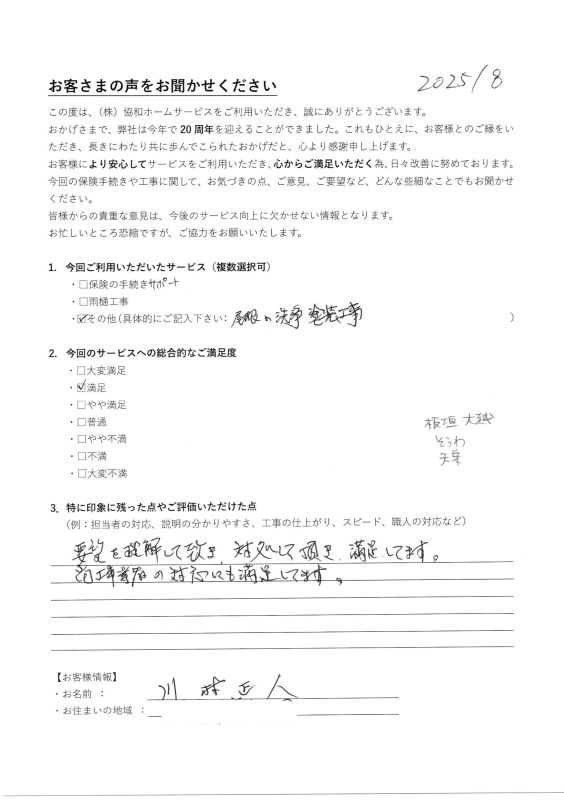 2025/8
お客さまの声をお聞かせください
この度は、（株）協和ホームサービスをご利用いただき、誠にありがとうございます。
おかげさまで、弊社は今年で20周年を迎えることができました。これもひとえに、お客様とのご縁をい
ただき、長きにわたり共に歩んでこられたおかげだと、心より感謝申し上げます。
お客様により安心してサービスをご利用いただき、心からご満足いただく為、日々改善に努めております。
今回の保険手続きや工事に関して、お気づきの点、ご意見、ご要望など、どんな些細なことでもお聞かせ
ください。
皆様からの貴重な意見は、今後のサービス向上に欠かせない情報となります。
お忙しいところ恐縮ですが、ご協力をお願いいたします。
1. 今回ご利用いただいたサービス（複数選択可）
・□保険の手続きサポート
・□雨樋工事
・☑その他（具体的にご記入下さい：屋根の洗浄 塗装工事）
2. 今回のサービスへの総合的なご満足度
・□大変満足
・☑満足
・□やや満足
・□普通
・□やや不満
・□不満
・□大変不満
板垣 大越
そうわ
3. 特に印象に残った点やご評価いただけた点
（例：担当者の対応、説明の分かりやすさ、工事の仕上がり、スピード、職人の対応など）
要望を理解して致き、対処して頂き、満足してます。
施工業者の対応にも満足してます。
【お客様情報】
・お名前 ： 川 正人
・お住まいの地域 ：